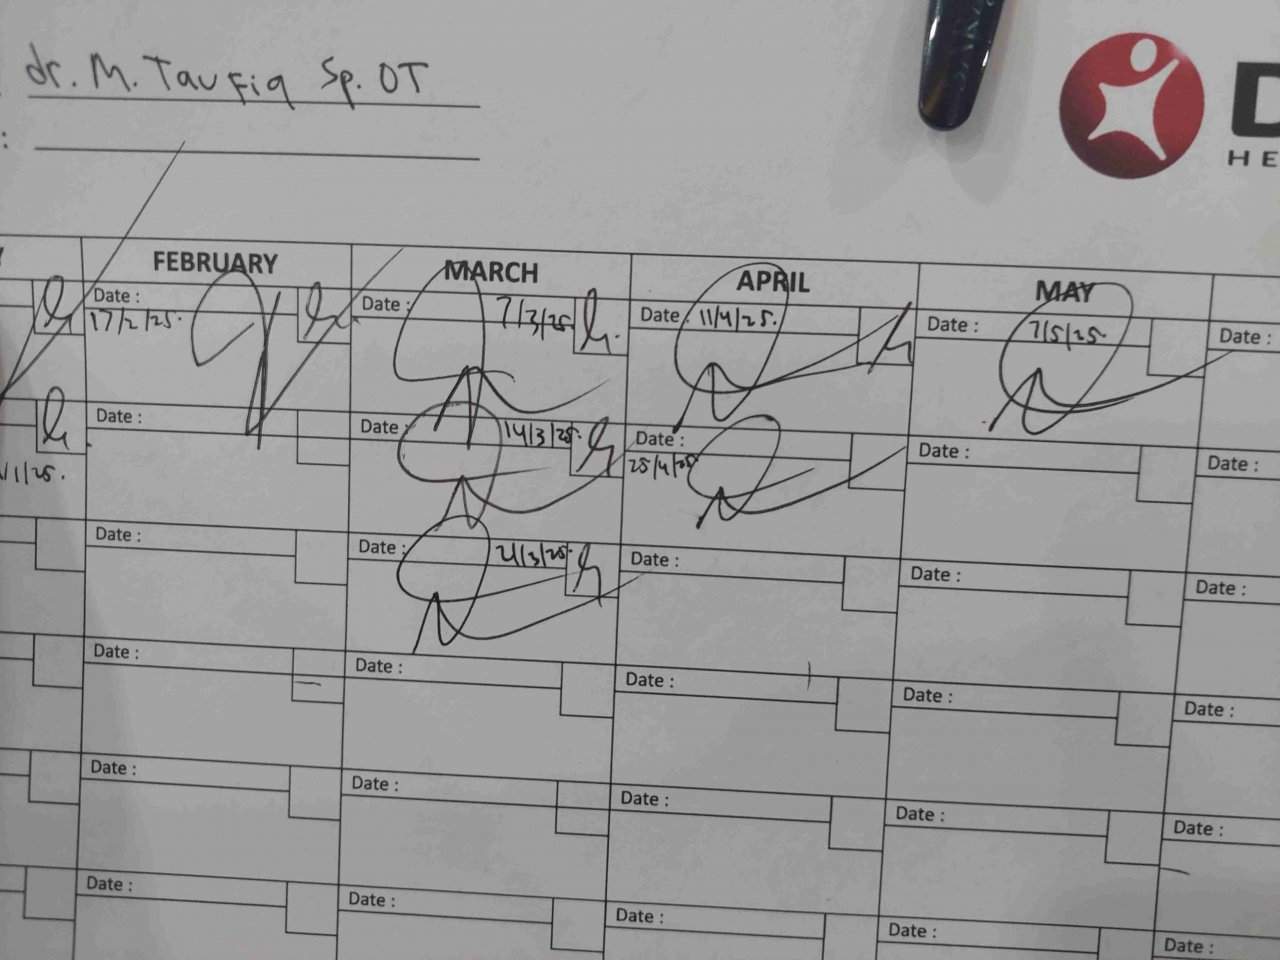 dr. M. Taufiq Sp. OT
:
FEBRUARY MARCH APRIL MAY
Date : Date : 7/3/25. Date : 11/4/25. Date : 7/5/25. Date :
17/2/25.
Date : Date : 14/3/25. Date : Date : Date :
/1/25. 25/4/25
Date : Date : 21/3/25. Date : Date : Date :
Date : Date : Date : Date : Date :
Date : Date : Date : Date : Date :
Date : Date : Date : Date : Date :
D
HE